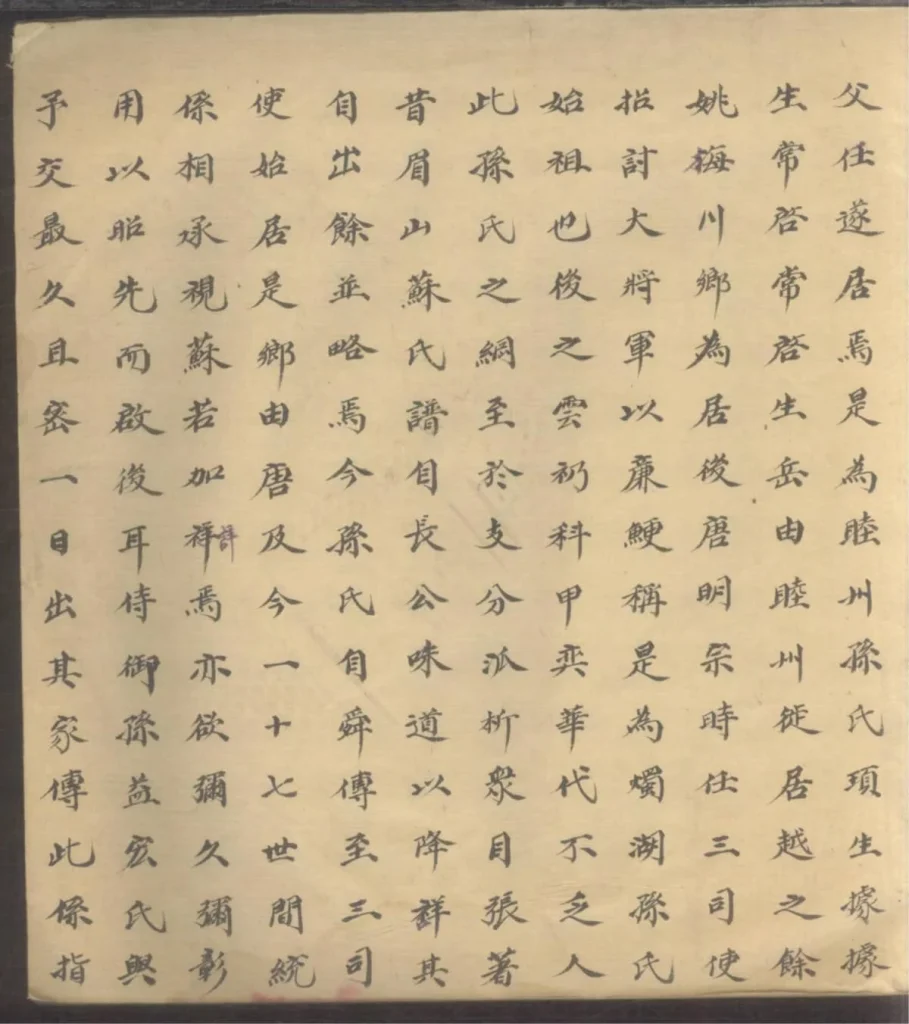 父任遂居焉是為睦州孫氏頊生據據
生常啓常啓生岳由睦州徙居越之餘
姚梅川鄉為居後唐明宗時任三司使
招討大將軍以廉鯁稱是為燭湖孫氏
始祖也後之雲礽科甲奕華代不乏人
此孫氏之綱至於支分派析衆目張著
昔眉山蘇氏譜自長公味道以降詳其
自出餘並略焉今孫氏自舜傳至三司
使始居是鄉由唐及今一十七世間統
係相承視蘇若加祥詳焉亦欲彌久彌彰
用以昭先而啟後耳侍御孫益宏氏與
予交最久且密一日出其家傳此係指